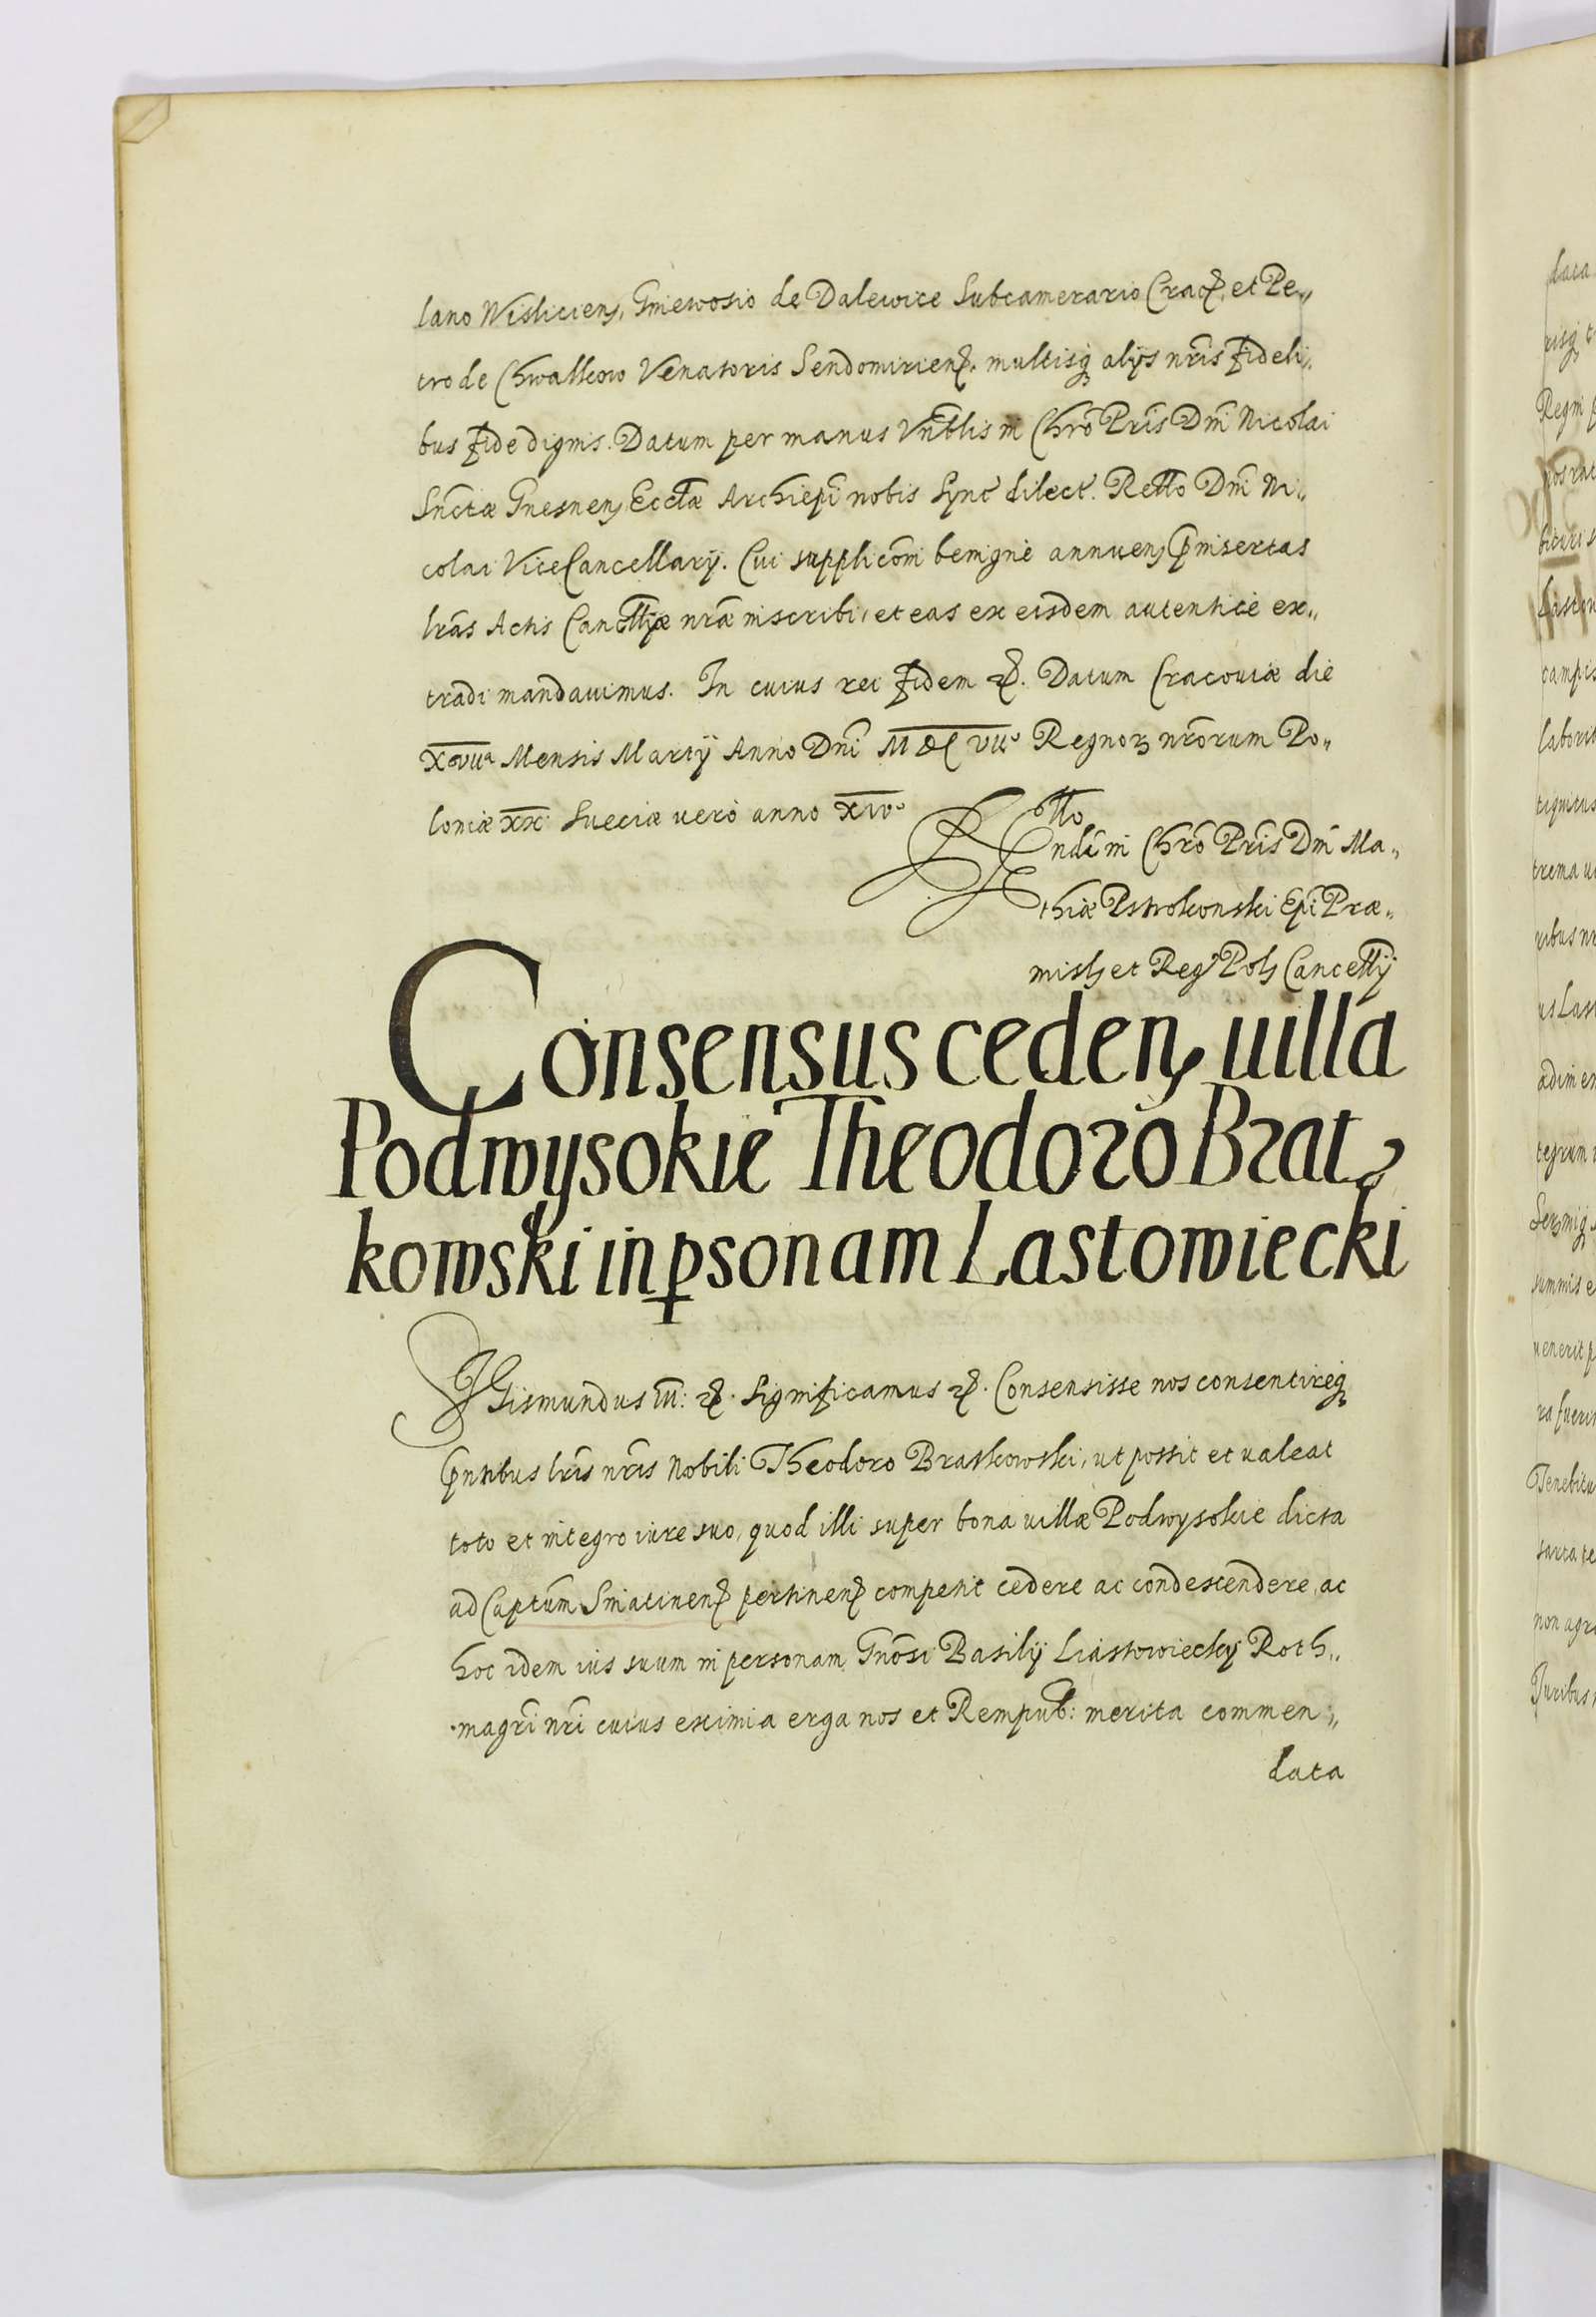 lano Wisliciens, Gniewosio de Dalewice Subcamerario Crac, et Pe„
tro de Chwalkow Venatoris Sendomirien. multisq alijs nris fideli„
bus fide dignis. Datum per manus Vnblis in Chro Pris Dni Nicolai
Snctæ Gnesnen Ecclæ Archiepi nobis Sync dilect. Rello Dni Ni„
colai ViceCancellarij. Cui supplicōni benignè annuen pinsertas
lras Actis Cancllijæ nræ inscribi, et eas ex eisdem autenticè ex„
tradi mandauimus. In cuius rei fidem &. Datum Cracouiæ die
XXVIIa Mensis Martij Anno Dni MDCVIIo Regnor nrorum Po„
loniæ XX Sueciæ uerò anno XIVo
Rello
Rndi in Chro Pris Dni Ma„
thiæ Pstrokonski Epi Præ„
misl et Regi Pol Cancellij
Consensus ceden uilla
Podwysokie Theodoro Brat„
kowski in psonam Lastowiecki
Sigismundus III: &. Significamus &. Consensisse nos consentireq
pntibus lris nris Nobili Theodoro Bratkowski, ut possit et ualeat
toto et integro iure suo, quod illi super bona uillæ Podwysokie dicta
ad Captum Sniatinen pertinen competit cedere ac condescendere, ac
hoc idem ius suum in personam Gnosi Basilij Liastowiecky Roth„
magri nri cuius eximia erga nos et Rempub: merita commen„
data